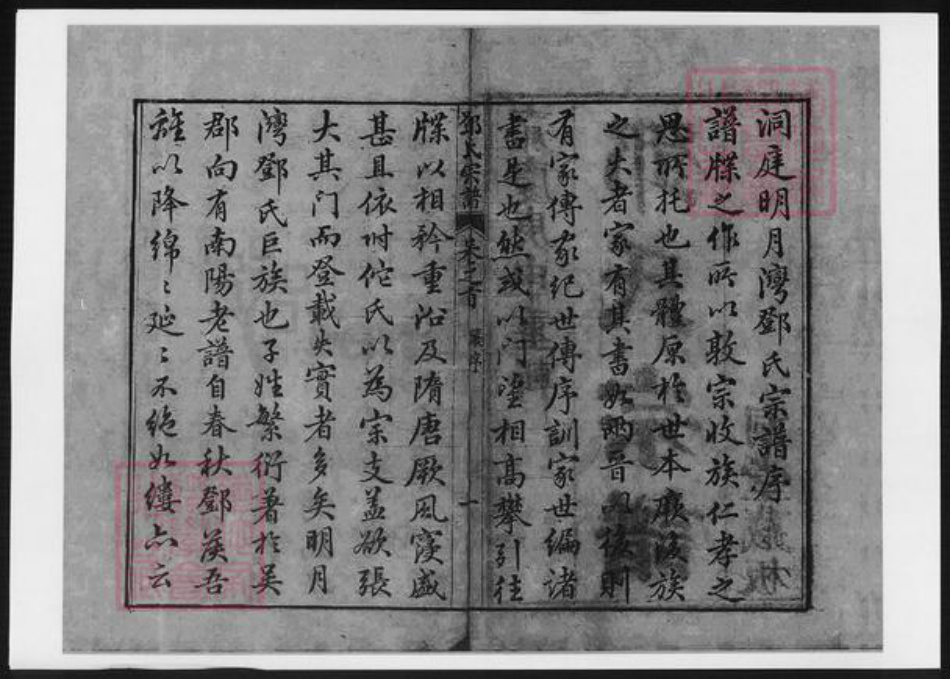 洞庭明月灣鄧氏宗譜序
譜牒之作所以敦宗收族仁孝之
思所托也其體原於世本厥後族
之大者家有其書如兩晉以後則
有家傳家紀世傳序訓家世編諸
書是也然或以門望相高攀引往
鄧氏宗譜 卷之首 序 一
牒以相矜重沿及隋唐厥風寖盛
甚且依附佗氏以為宗支蓋欲張
大其門而登載失實者多矣明月
灣鄧氏巨族也子姓繁衍著於吳
郡向有南陽老譜自春秋鄧侯吾
離以降綿〻延〻不絕如縷亦云